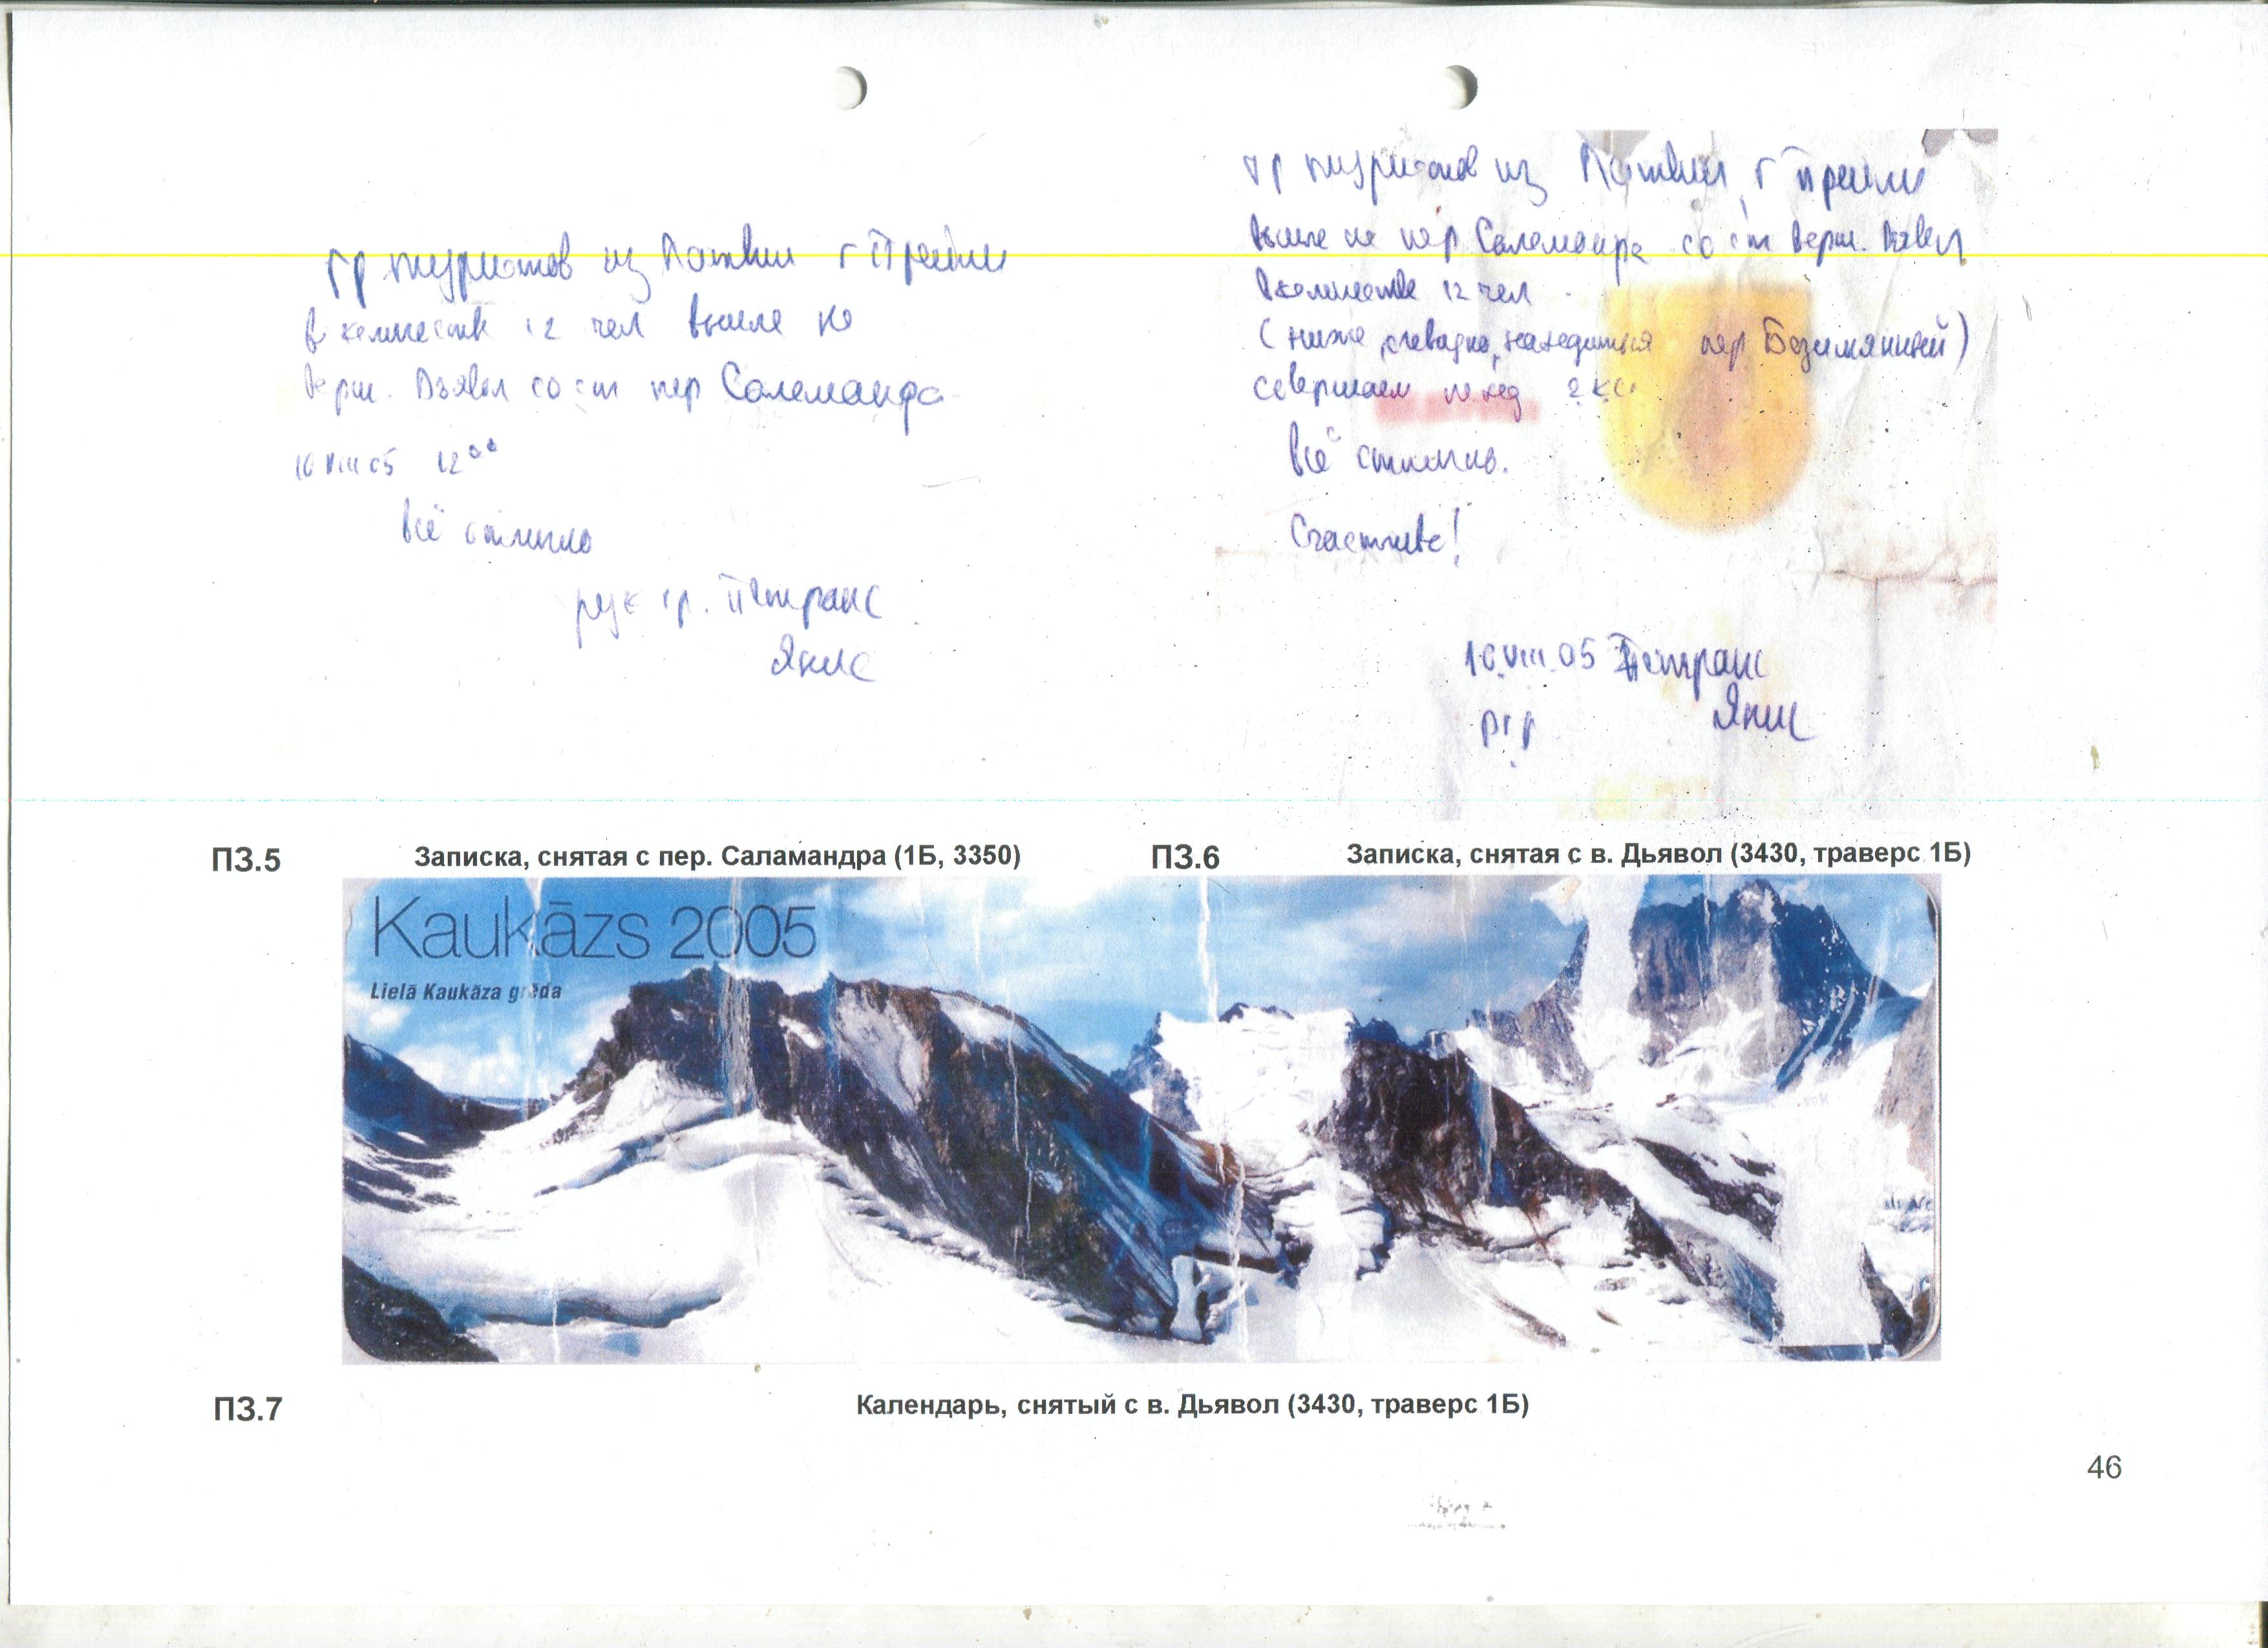 гр туристов из Латвии г Прейли
в количестве 12 чел вышла на
верш. Дьявол со ст пер Саламандра
10 VIII 05 12⁰⁰
всё отлично
рук гр. Петранс
Янис
гр туристов из Латвии г Прейли
вышла на пер Саламандра со ст верш. Дьявол
в количестве 12 чел.
(ниже, очевидно, находиться пер Безимянный)
совершаем поход 2 кс.
Всё отлично.
Счастливо!
10.VIII.05 Петранс
ргр Янис
ПЗ.5 Записка, снятая с пер. Саламандра (1Б, 3350)
ПЗ.6 Записка, снятая с в. Дьявол (3430, траверс 1Б)
Kaukāzs 2005
Lielā Kaukāza grēda
ПЗ.7 Календарь, снятый с в. Дьявол (3430, траверс 1Б)
46